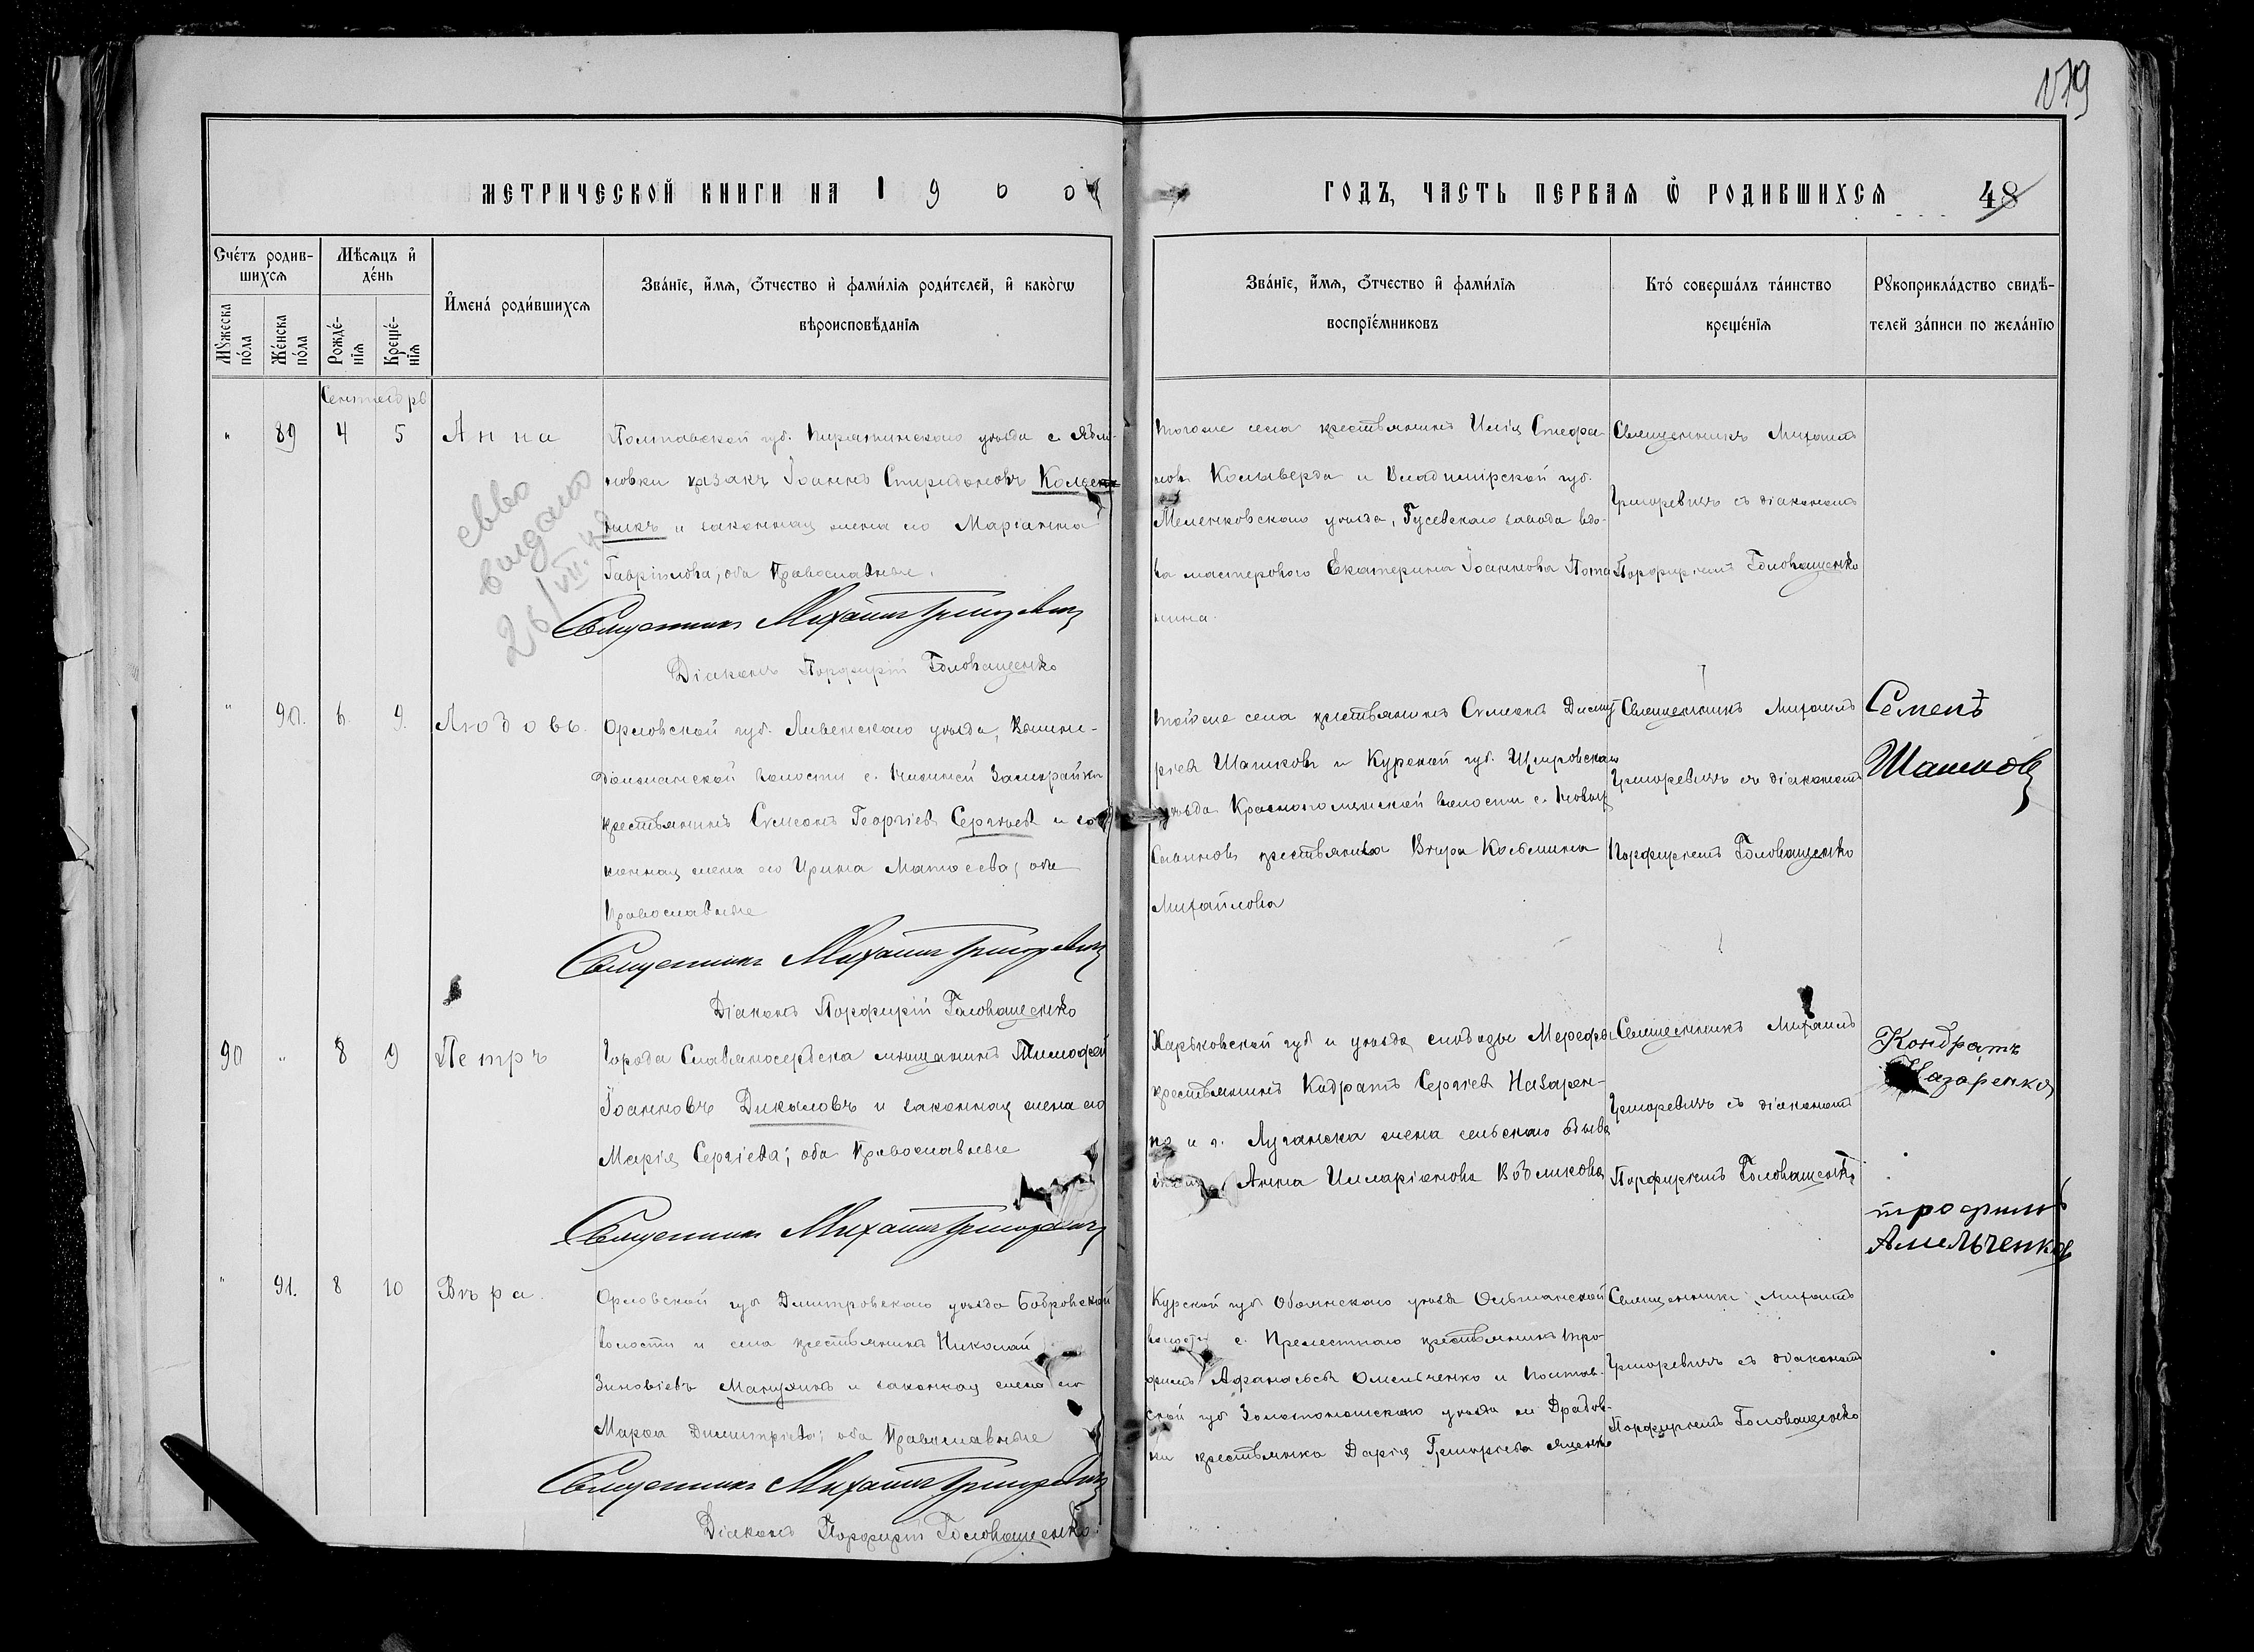 179
МЕТРИЧЕСКОЙ КНИГИ НА 1900
ГОДЪ, ЧАСТЬ ПЕРВАЯ Ѡ РОДИВШИХСЯ
48
Сче́тъ родив-
шихся
Мѣсяцъ и
де́нь
Имена́ роди́вшихся
Зва́нїе, и́мя, ѻ҆́тчество и фами́лїя роди́телей, и како́гѡ
вѣроисповѣ́данїя
Мꙋжеска
по́ла
Же́нска
по́ла
Рожде́-
нїя
Креще́-
нїя
Зва́нїе, и́мя, ѻ҆́тчество и фами́лїя
воспрїе́мниковъ
Кто́ соверша́лъ та́инство
креще́нїя
Рꙋкоприкла́дство свидѣ́-
телей за́писи по жела́нїю
Сентябрь
" 89 4 5 Анна
Полтавской губ. Пирятинскаго уѣзда с. Ябли-
новки казакъ Іоаннъ Спиридоновъ
и законная жена его Маріанна
Гавріилова; оба Православные.
Священникъ Михаилъ Григоревичъ
Діаконъ Порфирій Головащенко
выдано
26/VII
тогоже села крестьянинъ Илія Стефа-
новъ Кольверда и Владимірской губ.
Меленковскаго уѣзда, Гусевскаго завода вдо-
ва мастероваго Екатерина Іоаннова
Священникъ Михаилъ
Григоревичъ съ діакономъ
Порфиріемъ Головащенко
" 90. 6. 9. Любовь.
Орловской губ. Ливенскаго уѣзда,
волости с.
крестьянинъ Сѵмеонъ Георгіевъ Сергѣевъ и за-
конная жена его Ирина Матѳеева; оба
Православные
Священникъ Михаилъ Григоревичъ
Діаконъ Порфирій Головащенко
тойже села крестьянинъ Сѵмеонъ Димит-
ріевъ Шашковъ и Курской губ. Щигровскаго
уѣзда волости с. Новыхъ
крестьянка Вѣра Косьмина
Михайлова
Священникъ Михаилъ
Григоревичъ съ діакономъ
Порфиріемъ Головащенко
Семенъ
Шашковъ
90 " 8 9 Петръ
Города Славяносербска мѣщанинъ Тимофей
Іоанновъ Дикаловъ и законная жена его
Марія Сергіева; оба Православные
Священникъ Михаилъ Григоревичъ
Харьковской губ и уѣзда, слободы Мерефы
крестьянинъ Кодратъ Сергіевъ Назарен-
ко и г. Луганска жена сельскаго обыва
Анна Илларіонова
Священникъ Михаилъ
Григоревичъ съ діакономъ
Порфиріемъ Головащенко
Кондратъ
Назаренко
" 91. 8 10 Вѣра.
Орловской губ Дмитровскаго уѣзда Бобровской
волости и села крестьянинъ Николай
Зиновіевъ Манухинъ и законная жена его
Марѳа Димитріева; оба Православные
Священникъ Михаилъ Григоревичъ
Діаконъ Порфирій Головащенко.
Курской губ Обоянскаго уѣзда Ольшанской
волости с. Прелестнаго крестьянинъ Тро-
фимъ Афанасьевъ Омельченко и Полтав-
ской губ Золотоношскаго уѣзда м Драбов-
ки крестьянка Дарія Григоріева Яценко
Священникъ Михаилъ
Григоревичъ съ діакономъ
Порфиріемъ Головащенко
трофимъ
Амельченков